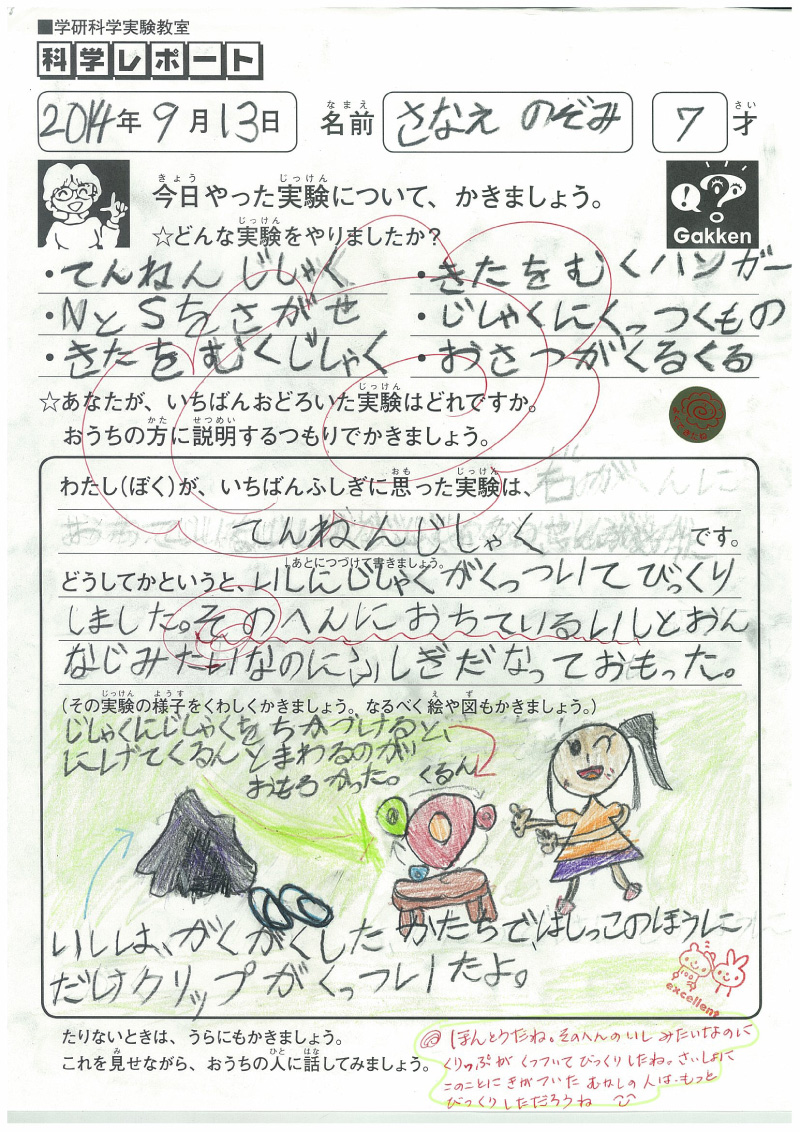 ■学研科学実験教室
科学レポート
2014年9月13日 名前 なまえ さなえ のぞみ 7才 さい
今日やった実験について、かきましょう。 きょう じっけん
☆どんな実験をやりましたか? じっけん
Gakken
・てんねんじしゃく
・NとSをさがせ
・きたをむくじしゃく
・きたをむくハンガー
・じしゃくにくっつくもの
・おさつがくるくる
☆あなたが、いちばんおどろいた実験はどれですか。 じっけん
おうちの方に説明するつもりでかきましょう。 かた せつめい
わたし(ぼく)が、いちばんふしぎに思った実験は、 おも じっけん
てんねんじしゃく です。
どうしてかというと、 あとにつづけて書きましょう。 いしにじしゃくがくっついてびっくり
しました。そのへんにおちているいしとおん
なじみたいなのにふしぎだなっておもった。
(その実験の様子をくわしくかきましょう。なるべく絵や図もかきましょう。) じっけん ようす え ず
じしゃくにじしゃくをちかづけると、
にげてくるんとまわるのが
おもろかった。
くるん
いしは、がくがくした かたちで、はしっこのほうに
だけクリップがくっついたよ。
excellent
たりないときは、うらにもかきましょう。
これを見せながら、おうちの人に話してみましょう。 み ひと はな
ほんとうだね。そのへんのいしみたいなのに
くりっぷがくっついてびっくりしたね。さいしょに
このことにきがついたむかしの人は、もっと
びっくりしただろうね